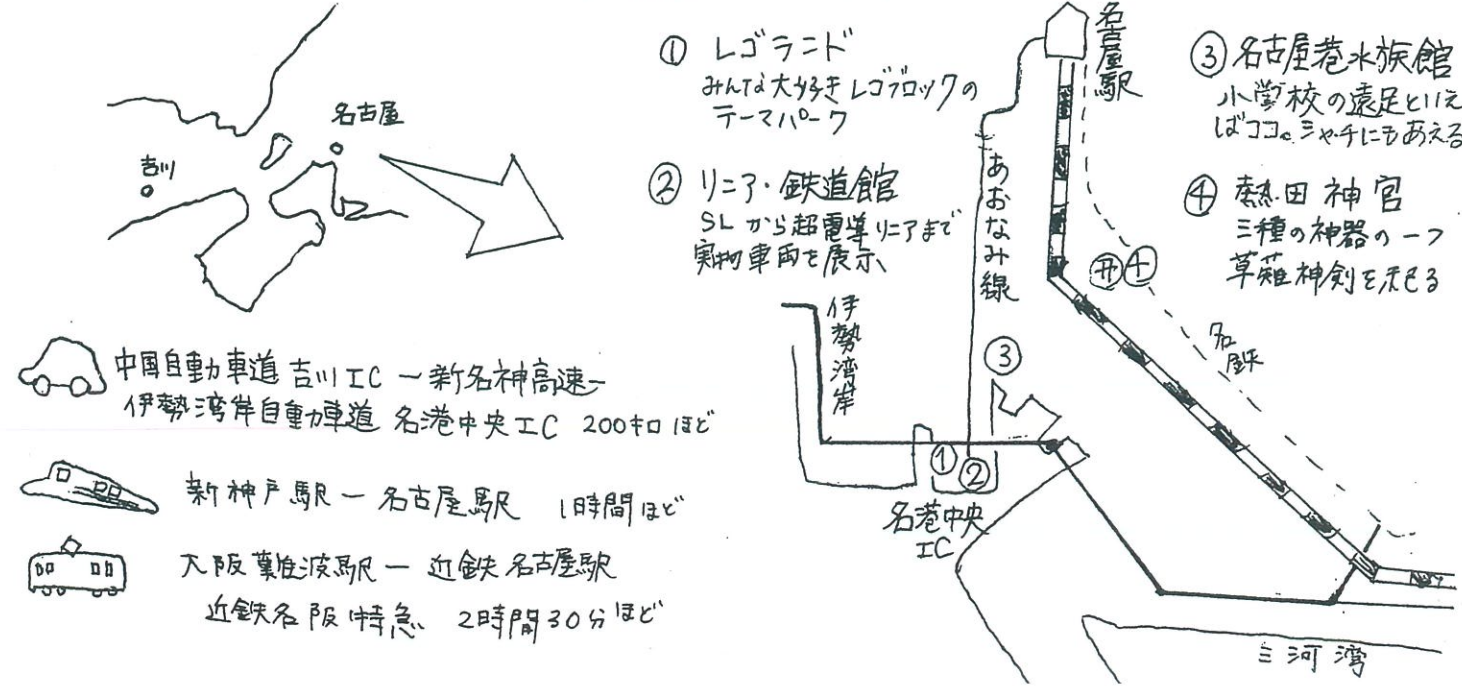 名古屋
吉川
中国自動車道 吉川IC ー新名神高速ー
伊勢湾岸自動車道 名港中央IC 200キロほど
新神戸駅ー名古屋駅 1時間ほど
大阪難波駅ー近鉄名古屋駅
近鉄名阪特急 2時間30分ほど
① レゴランド
みんな大好きレゴブロックの
テーマパーク
② リニア・鉄道館
SLから超電導リニアまで
実物車両を展示
名古屋駅
あおなみ線
伊勢湾岸
③
①
②
名港中央
IC
④
名鉄
三河湾
③ 名古屋港水族館
小学校の遠足といえ
ばココ。シャチにもあえる
④ 熱田神宮
三種の神器の一つ
草薙神剣を祀る